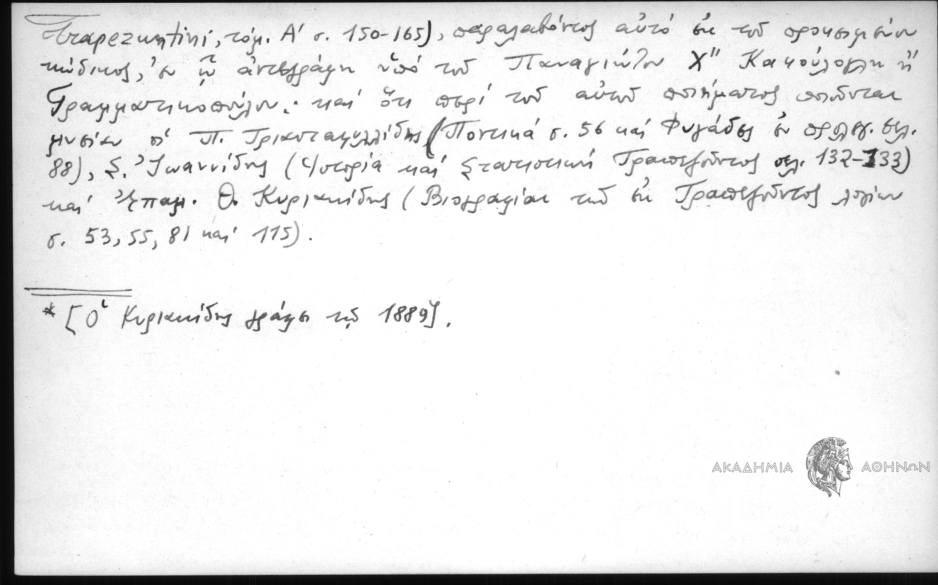 Trapezuntini, τόμ. Α' σ. 150-165), παραλαβόντος αὐτό ἐκ τοῦ προκειμένου
κώδικος, ἐν ᾧ ἀντεγράφη ὑπό τοῦ Παναγιώτου Χ" Κακούλογλη ἤ
Γραμματικοπούλου· καί ὅτι περί τοῦ αὐτοῦ ποιήματος ποιοῦνται
μνείαν οἱ Π. Τριανταφυλλίδης (Ποντικά σ. 56 καί Φυγάδες ἐν προλεγ. σελ.
88), Σ. Ἰωαννίδης (Ἱστορία καί Στατιστική Τραπεζοῦντος σελ. 132-133)
καί Ἐπαμ. Θ. Κυριακίδης (Βιογραφίαι τῶν ἐκ Τραπεζοῦντος λογίων
σ. 53, 55, 81 καί 115).
* [Ὁ Κυριακίδης γράφει τῷ 1889].
ΑΚΑΔΗΜΙΑ ΑΘΗΝΩΝ